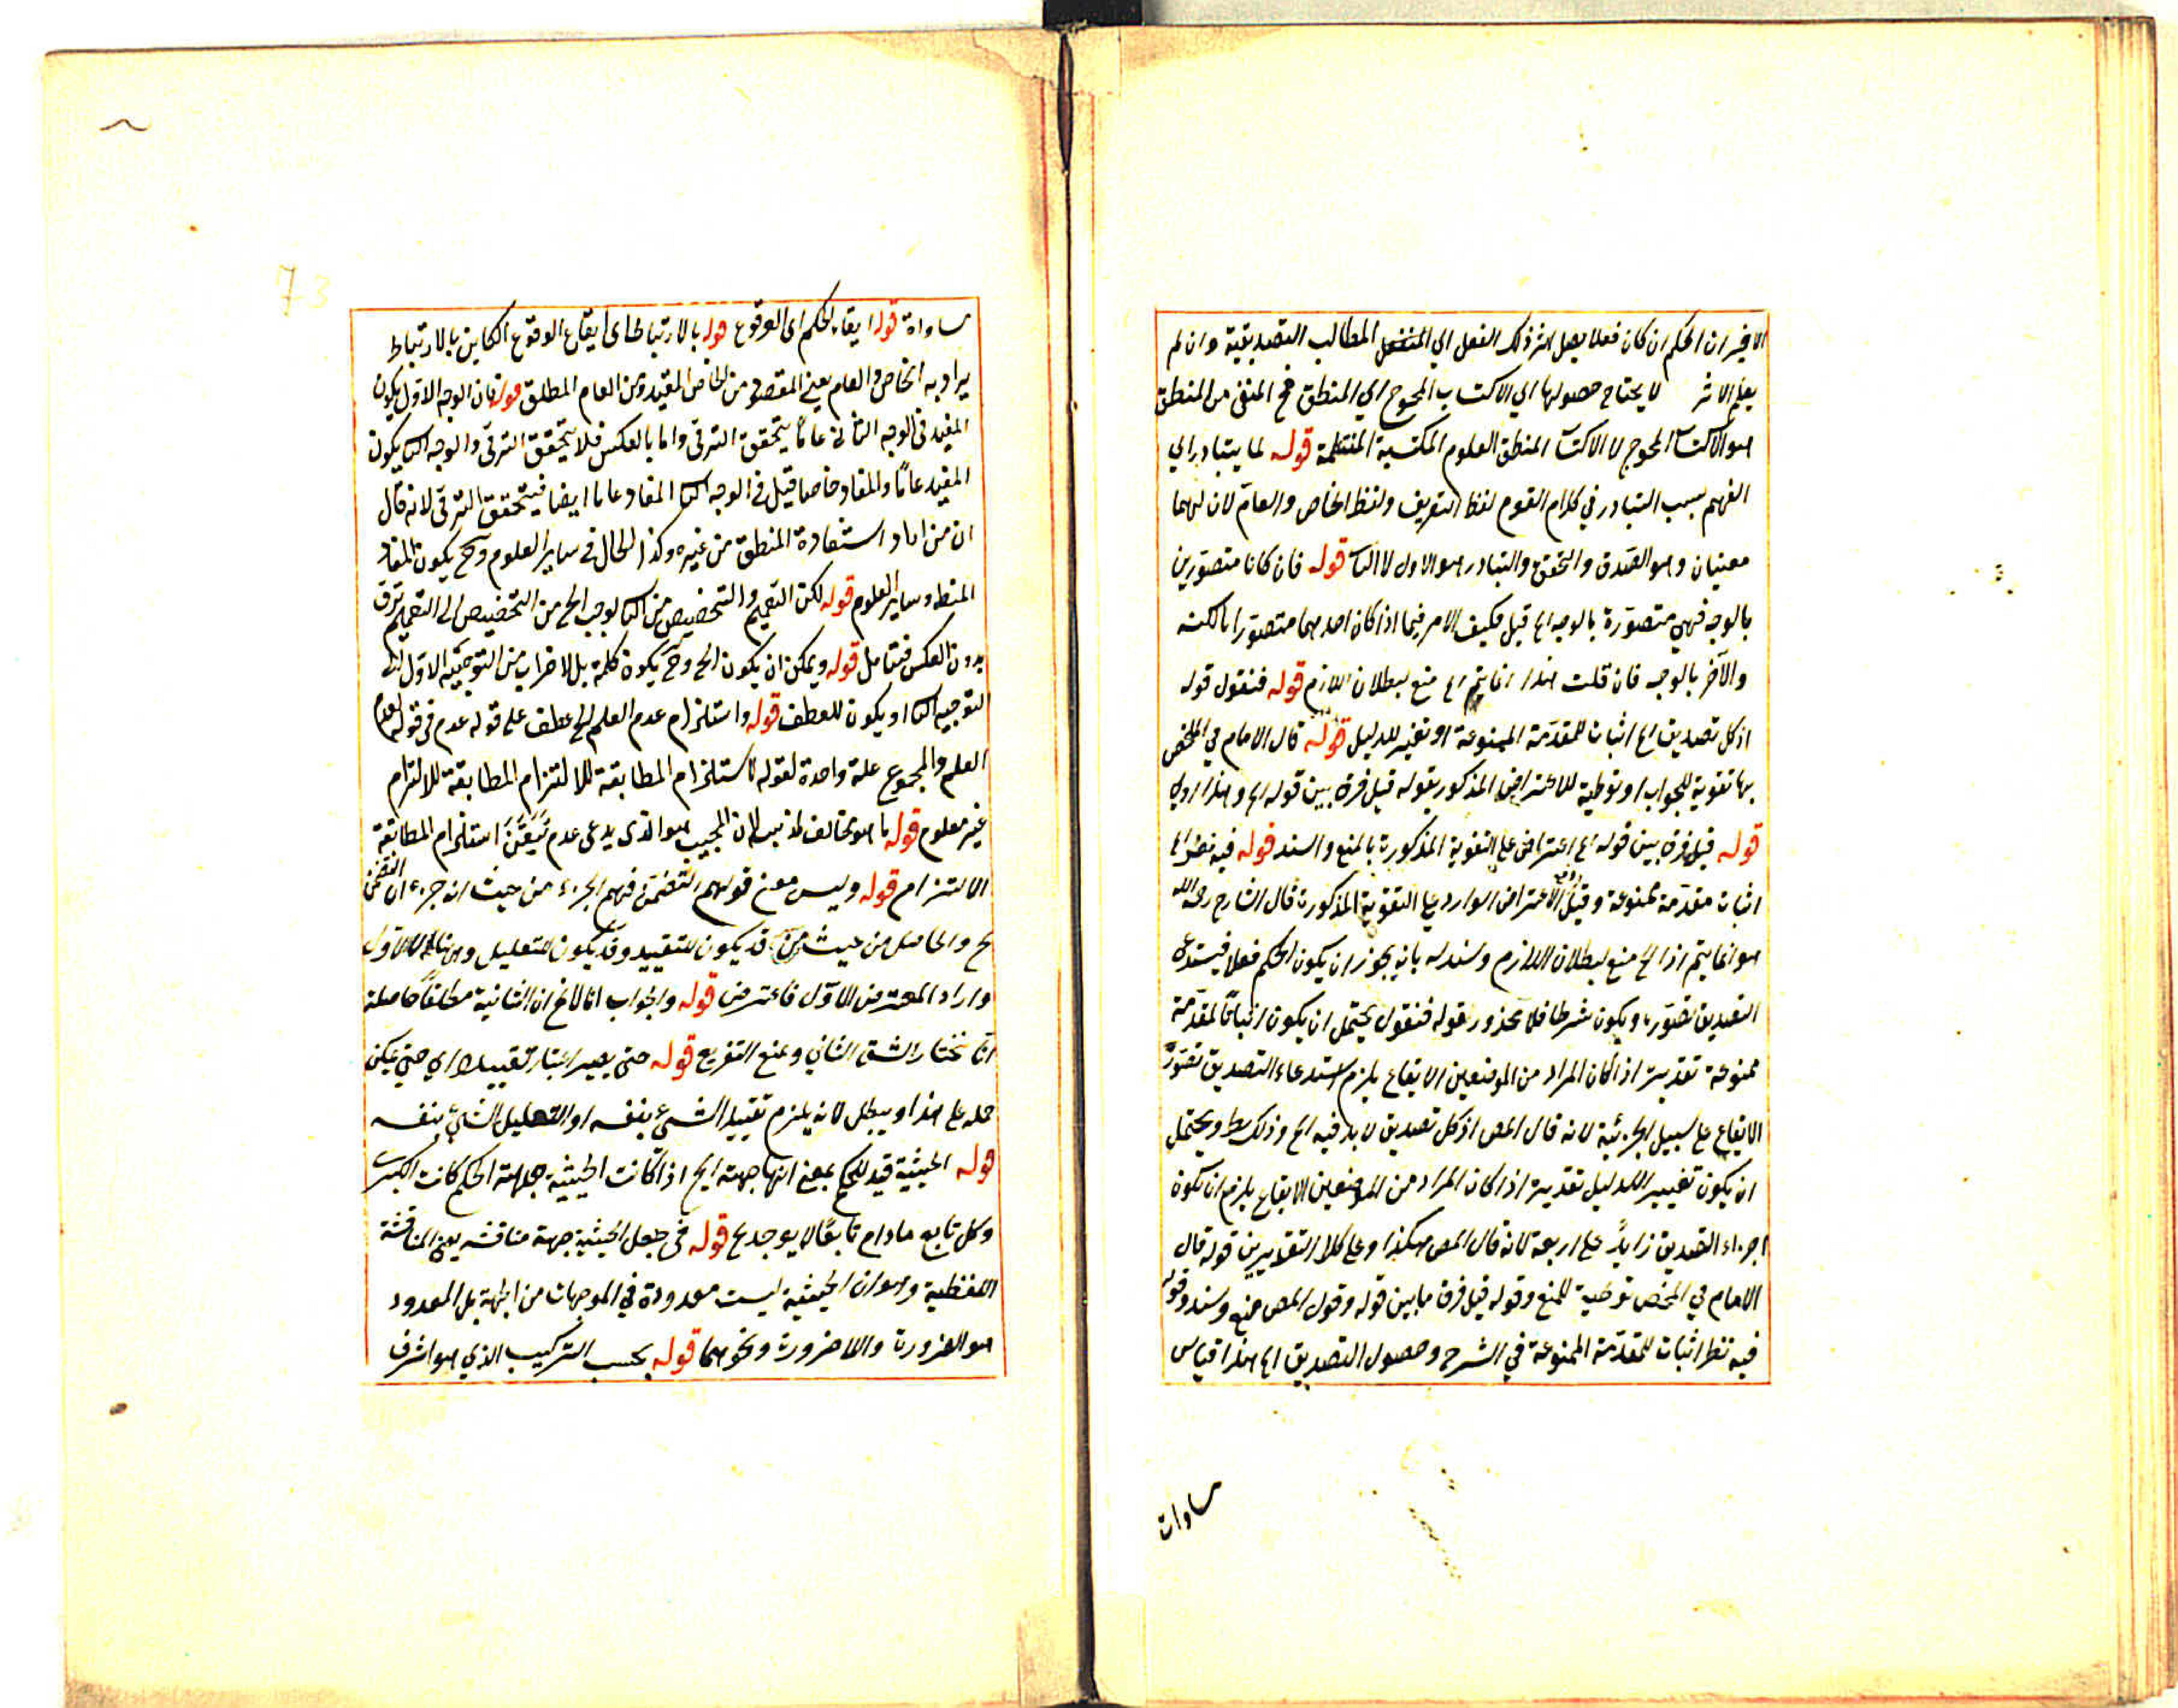 الاخير ان الحكم ان كان فعلا يصل اثر ذلك الفعل الي المنفعل المطالب التصديقية وان لم
يعلم الاثر لا يحتاج حصولها الي الاكتساب المحوج الي المنطق فح المنفي من المنطق
هو الاكتسا المحوج لا الاكتسا المنطق العلوم المكتسبة المنتظمة قوله لما يتبادر الي
الفهم بسبب التبادر في كلام القوم لفظ التعريف ولفظ الخاص والعام لان لهما
معنيان وهو الصدق والتحقق والتبادر هو الاول لا الثا قوله فان كانا متصورين
بالوجه فهي متصورة بالوجه اه قيل فكيف الامر فيما اذا كان احدهما متصورا بالكنه
والآخر بالوجه فان قلت هذا انما يتم اه منع بطلان اللازم قوله فنقول قوله
اذ كل تصديق اه اثبات للمقدمة الممنوعة او تغيير للدليل قوله قال الامام في الملخص
بها تقوية للجواب او توطية للاعتراض المذكور بقوله قيل فرق بين قوله اه وهذا اولي
قوله قيل فرق بين قوله اه اعتراض علي التقوية المذكورة بالمنع والسند قوله فيه نظر اه
اثبات مقدمة ممنوعة وقيل الاعتراض الوارد علي التقوية المذكورة قال الشارح رحمه الله
هو انما يتم اذا اه منع لبطلان اللازم وسنده بانه يجوز ان يكون الحكم فعلا فيستدعي
التصديق تصوره ويكون شرطا فلا محذور بقوله فنقول يحتمل ان يكون اثباتا لمقدمة
ممنوعة تقديره اذا كان المراد من الموضعين الايقاع يلزم استدعاء التصديق تصور
الايقاع علي سبيل الجزئية لانه قال المص اذ كل تصديق لابد فيه اه وذلك بط ويحتمل
ان يكون تغيير الدليل تقديره اذا كان المراد من الموضعين الايقاع يلزم ان يكون
اجزاء التصديق زايدا علي اربعة لانه قال المص هكذا وعلي كلا التقديرين قوله قال
الامام في الملخص توطية للمنع وقوله قيل فرق ما بين قوله وقول المص منع وسند وقوله
فيه نظر اثبات للمقدمة الممنوعة في الشرح وحصول التصديق اه هذا قياس
مساوات
مساواة قوله ايقاع الحكم اى الوقوع قوله بالارتباط اى ايقاع الوقوع الكاين بالارتباط
يراد به الخاص والعام يعني المقصود من الخاص المقيد ومن العام المطلق قوله فان الوجه الاول يكون
المفيد فى الوجه الثانى عاما يتحقق الترقى واما بالعكس فلا يتحقق الترقى والوجه الثا يكون
المفيد عاما والمفاد خاصا قيل فى الوجه الثا المفاد عاما ايضا فيتحقق الترقى لانه قال
ان من اراد استفادة المنطق من غيره وكذا الحال فى ساير العلوم وح يكون المفاد
المنطق وساير العلوم قوله لكن التعميم والتخصيص من الثا يوجب الخ من التخصيص الى التعميم ترق
بدون العكس فتأمل قوله ويمكن ان يكون الخ وح يكون كلمة بل للاضراب من التوجيه الاول الى
التوجيه الثا او يكون للعطف قوله واستلزام عدم العلم الخ عطف على قوله عدم فى قوله لعدم
العلم والمجموع علة واحدة لقوله لاستلزام المطابقة للالتزام المطابقة للالتزام
غير معلوم قوله ما هو مخالف لمذهب لان المجيب هو الذى يدعى عدم تيقن استلزام المطابقة
الالتزام قوله وليس معنى قولهم التضمن فهم الجزء من حيث انه جزء ان التضمن
الخ والحاصل من حيث من قد يكون للتقييد وقد يكون للتعليل وهنا للاول
واراد المعترض الاول فاعترض قوله والجواب انا لا نم ان الثانية مطلقا حاصلة
انا نختار الشق الثاني ونمنع التفريع قوله حتى يصير اعتبار تقييدا اي حتى يمكن
حمله على هذا ويبطل لانه يلزم تقييد الشئ بنفسه او التعليل الشئ بنفسه
قوله الحيثية قيد للحكم بمعنى انها جهة الخ اذا كانت الحيثية جهة الحكم كانت الكبرى
وكل تابع ما دام تابعا لا يوجد الخ قوله فى جعل الحيثية جهة مناقشة يعني المناقشة
اللفظية وهو ان الحيثية ليست معدودة في الموجهات من الجهة بل المعدود
هو الضرورة واللا ضرورة ونحوهما قوله بحسب التركيب الذي هو اشرف
73